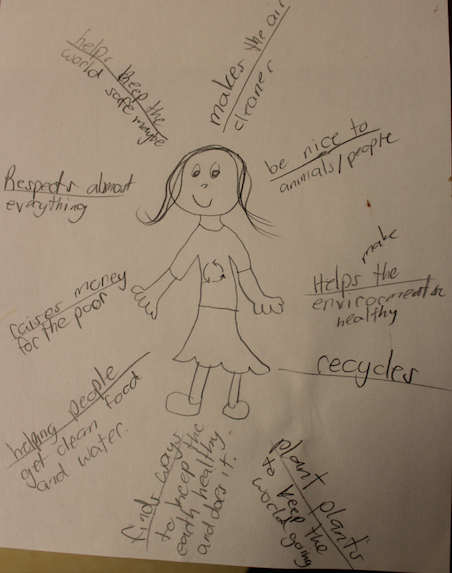 helps keep the
world safe maybe
makes the air
cleaner
be nice to
animals/people
Respects almost
everything
make
Helps the
environment
healthy
raises money
for the poor
recycles
helping people
get clean food
and water.
finds ways
to keep the
earth healthy
and does it.
plant plants
to keep the
world going